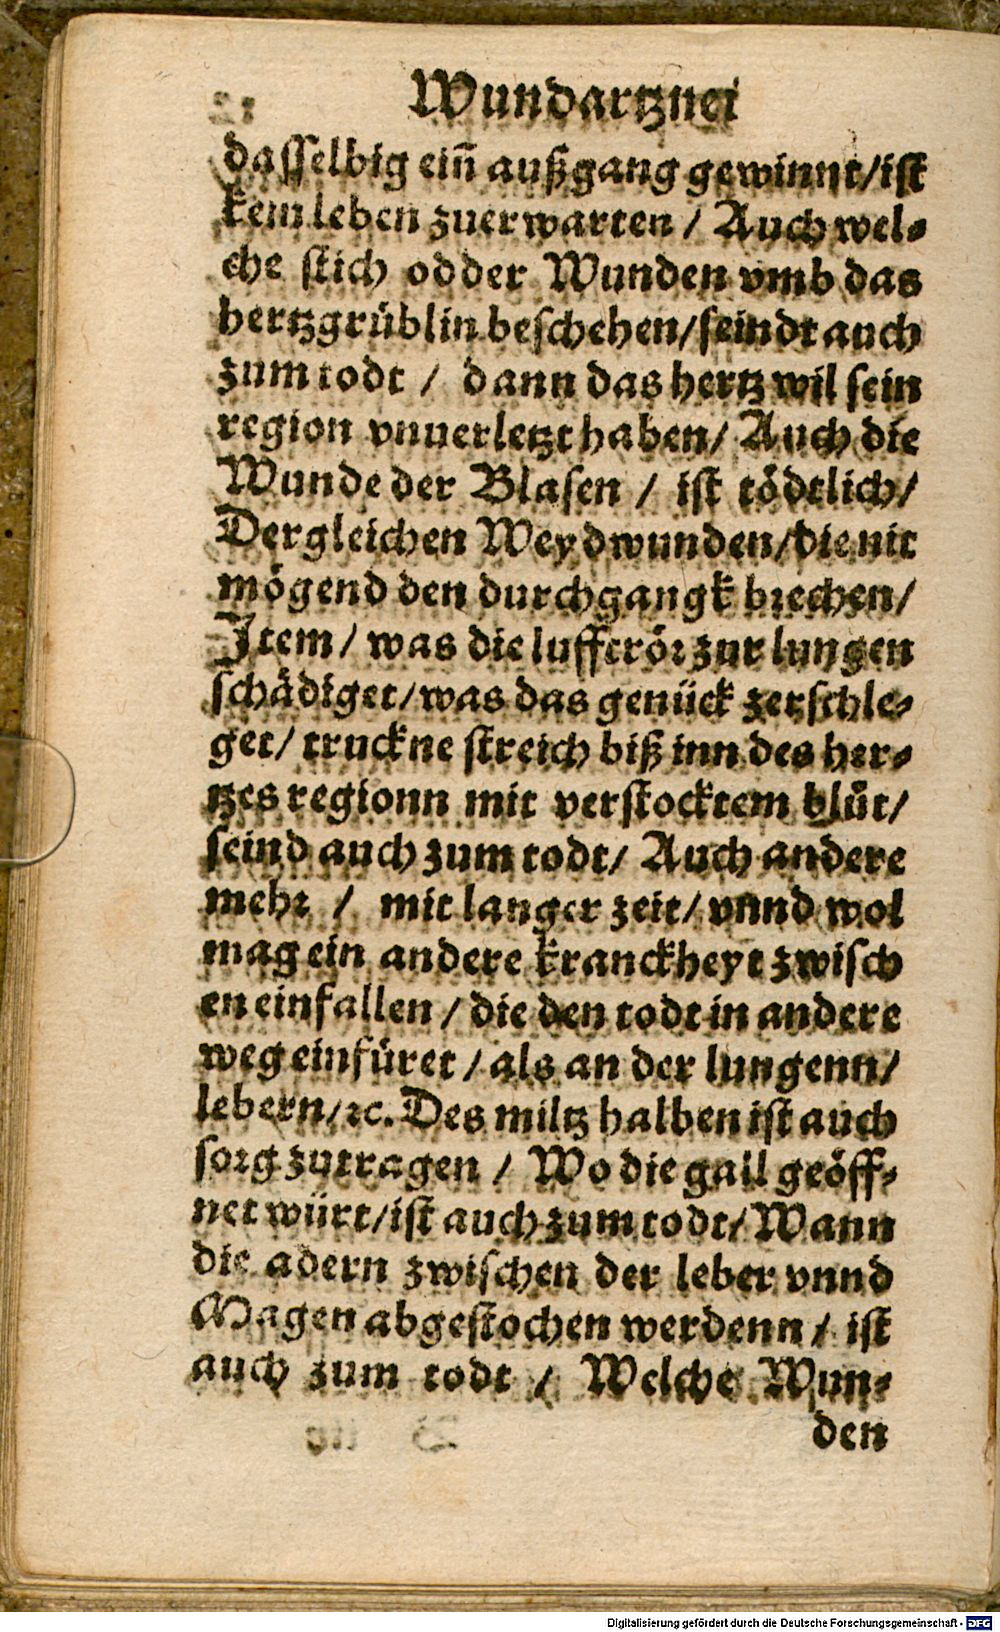 Wundartznei
dasselbig eiñ außgang gewinnt/ist
kein leben zuerwarten / Auch wel⸗
che stich odder Wunden vmb das
hertzgrüblin beschehen/seindt auch
zum todt / dann das hertz wil sein
region vnuerletzt haben/ Auch die
Wunde der Blasen / ist tödtlich/
Dergleichen Weydwunden/die nit
mögend den durchgangk brechen/
Item/ was die lufftrör zur lungen
schädiget/was das genück zerschle⸗
get/ truckne streich biß inn des her⸗
tzes regionn mit verstocktem blůt/
seind auch zum todt/ Auch andere
mehr / mit langer zeit/ vnnd wol
mag ein andere kranckheyt zwisch
en einfallen / die den todt in andere
weg einfüret / als an der lungenn/
lebern/ꝛc. Des miltz halben ist auch
sorg zutragen / Wo die gall geöff⸗
net würt/ist auch zum todt/ Wann
die adern zwischen der leber vnnd
Magen abgestochen werdenn / ist
auch zum todt / Welche Wun⸗
den
Digitalisierung gefördert durch die Deutsche Forschungsgemeinschaft - DFG